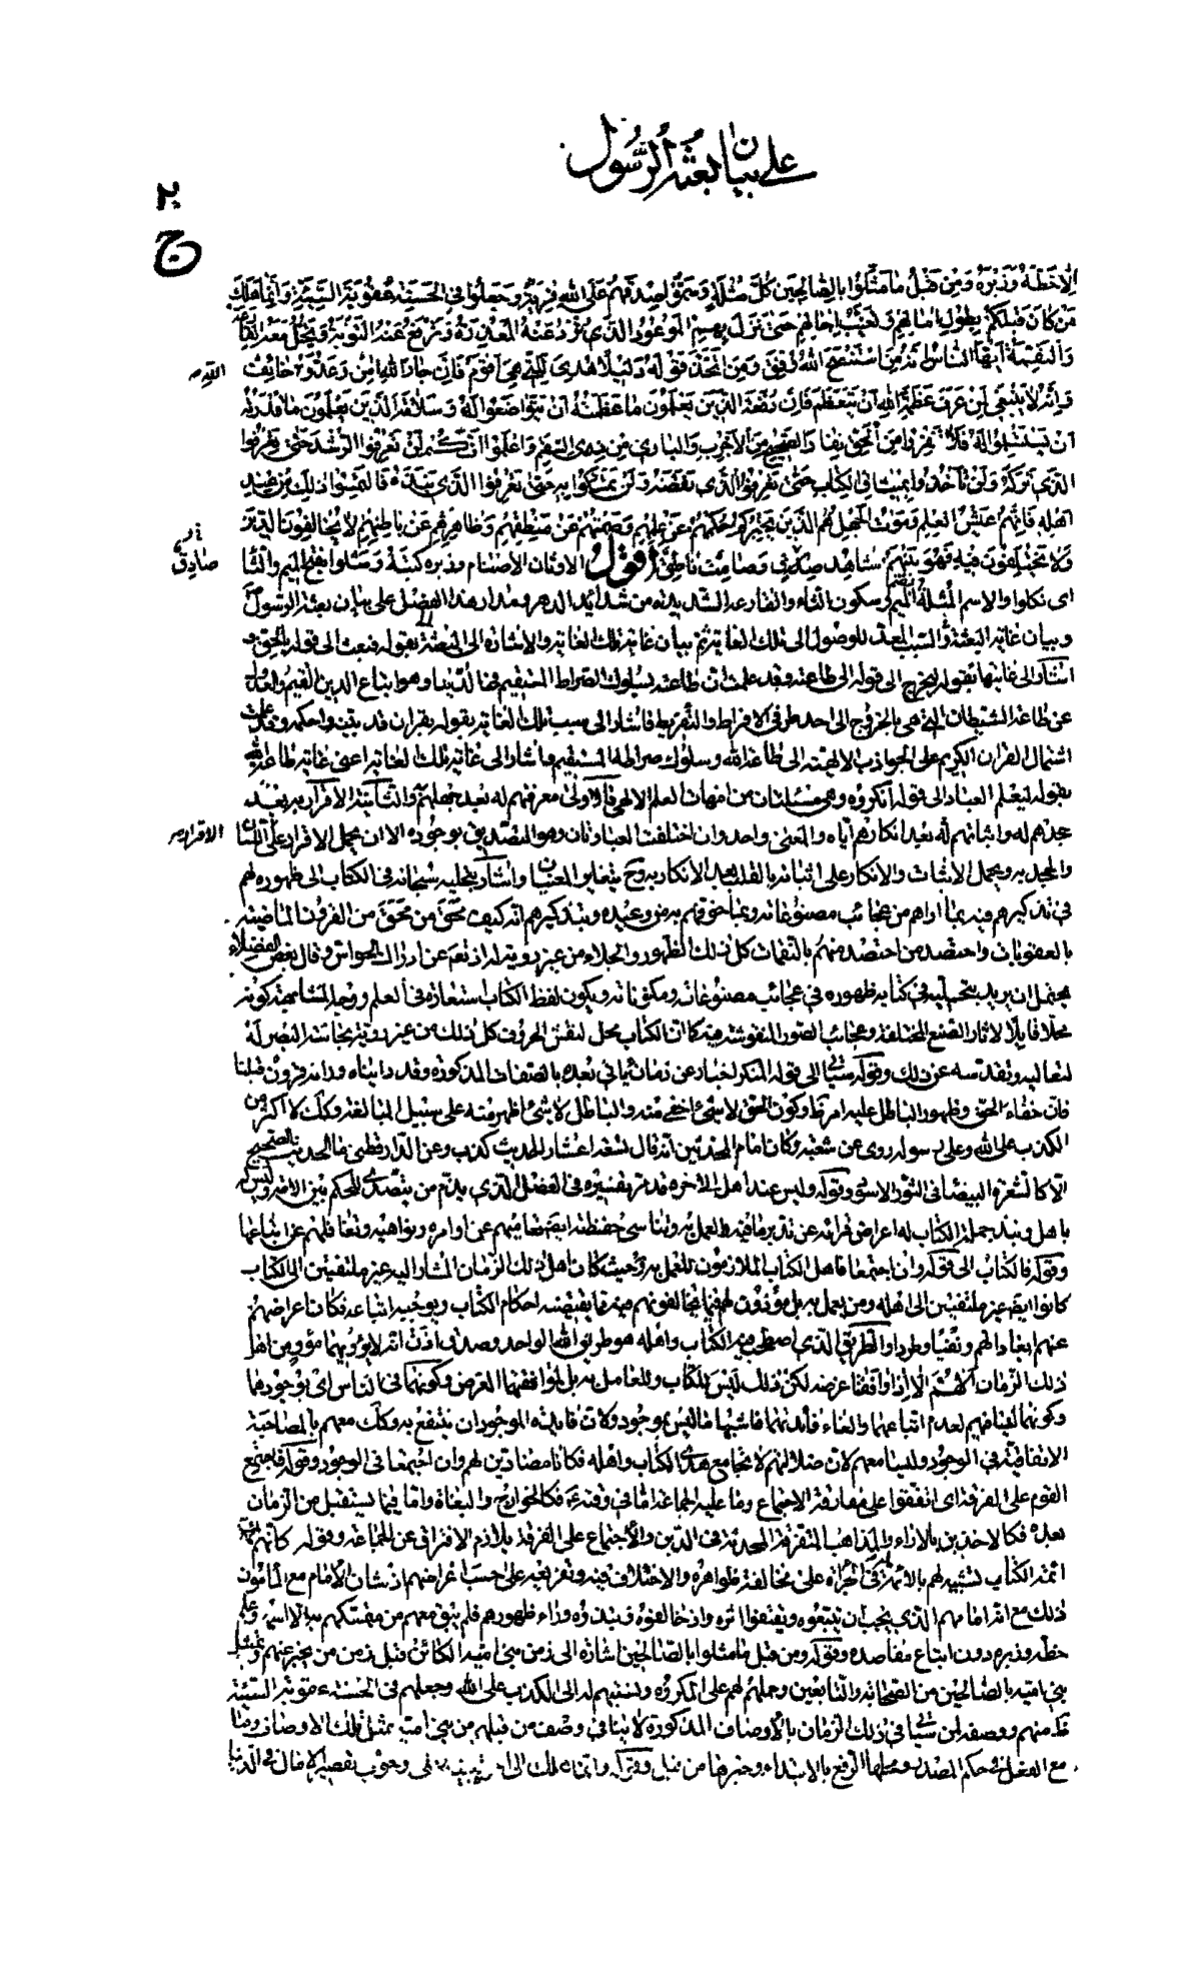 على بيان بعثة الرسول
٢
ج
الا خطه وزبره ومن قبل ما مثلوا بالصالحين كل مثلة وسموا صدقهم على الله فرية وجعلوا في الحسنة عقوبة السيئة وانما هلك
من كان قبلكم بطول امالهم وتغيب اجالهم حتى نزل بهم الموعود الذي ترد عنه المعذرة وترفع عنه التوبة وتحل معه القارعة
والنقمة ايها الناس انه من استنصح الله وفق ومن اتخذ قوله دليلا هدي للتي هي اقوم فان جار الله امن وعدوه خائف
وانه لا ينبغي لمن عرف عظمة الله ان يتعظم فان رفعة الذين يعلمون ما عظمته ان يتواضعوا له وسلامة الذين يعلمون ما قدرته
ان يستسلموا له فلا تنفروا من الحق نفار الصحيح من الاجرب والباري من ذي السقم واعلموا انكم لن تعرفوا الرشد حتى تعرفوا
الذي تركه ولن تأخذوا بميثاق الكتاب حتى تعرفوا الذي نقضه ولن تمسكوا به حتى تعرفوا الذي نبذه فالتمسوا ذلك من عند
اهله فانهم عيش العلم وموت الجهل هم الذين يخبركم حكمهم عن علمهم وصمتهم عن منطقهم وظاهرهم عن باطنهم لا يخالفون الدين
ولا يختلفون فيه فهو بينهم شاهد صادق وصامت ناطق اقول الاوثان الاصنام وزبره كتبه ومثلوا بفتح الميم والثاء
صادق
اى نكلوا والاسم المثلة بضم الميم وسكون الثاء والقارعة الشديدة من شدائد الدهر ومدار هذا الفصل على بيان بعثة الرسول
وبيان غاية البعثة والسبب المعد للوصول الى تلك الغاية ثم بيان غاية تلك الغاية والاشارة الى البعثة بقوله فبعث الى قوله بالحق و
اشار الى غايتها بقوله ليخرج الى قوله الى طاعته وقد علمت ان طاعته بسلوك الصراط المستقيم في الدنيا وهو اتباع الدين القيم والعدول
عن طاعة الشيطان التي هي بالخروج الى احد طرفى الافراط والتفريط فاشار الى سبب تلك الغاية بقوله بقران قد بينه واحكمه وقد علمت
اشتمال القران الكريم على الجواذب الالهية الى طاعة الله وسلوك صراطه المستقيم واشار الى غاية تلك الغاية اعنى غاية طاعة الله
بقوله ليعلم العباد الى قوله انكروه وهى مسئلتان من امهات العلم الالهى فالاولى معرفتهم له بعد جهلهم والثانية الاقرار به بعد
جحدهم له واثباتهم له بعد انكارهم اياه والمعنى واحد وان اختلفت العبارتان وهو التصديق بوجوده الا ان يحمل الاقرار على اللسان
الاقرار
والجحد به ويحمل الاثبات والانكار على اثباته بالقلب بعد الانكار به وح يتغاير المعنيان واشار بتجليه سبحانه فى الكتاب الى ظهوره لهم
في تذكيرهم فيه بما اراهم من عجائب مصنوعاته وبما خوفهم به من وعيده وبتذكيرهم انه كيف محق من محق من القرون الماضية
بالعقوبات واحتصد من احتصد منهم بالنقمات كل ذلك الظهور والجلاء من غير رؤية له اذ تعه عن ادراك الحواس وقال بعض الفضلاء
يحتمل ان يريد بتجليه في كتابه ظهوره في عجائب مصنوعاته ومكوناته ويكون لفظ الكتاب استعارة فى العلم ووجه المشابهة كونه
محلا قابلا لاثار الصنع المختلفة وعجائب الصور المنقوشة فيه كما ان الكتاب محل لنقش الحروف كل ذلك من غير رؤية بحاسة البصر له
لتعاليه وتقدسه عن ذلك وقوله سيأتي الى قوله المنكر اخبار عن زمان يأتى بعده بالصفات المذكورة وقد رأيناه ورأته قرون قبلنا
فان خفاء الحق وظهور الباطل عليه امر ظ وكون الحق لا شئ اخفى منه والباطل لا شئ اظهر منه على سبيل المبالغة وكك لا اكثر من
الكذب على الله وعلى رسوله روى عن شعبة وكان امام المحدثين انه قال تسعة اعشار الحديث كذب وعن الدارقطني ما الحديث الصحيح
الا كالشعرة البيضاء فى الثور الاسود وقوله وليس عند اهل الى اخره قد مر تفسيره فى الفصل الذى يذم من يتصدى للحكم بين الامة وليس له
باهل ونبذ حملة الكتاب له اعراض قرائه عن تدبر ما فيه والعمل به وتناسى حفظته ايضا تعاميهم عن اوامره ونواهيه وتغافلهم عن اتباعها
وقوله فالكتاب الى قوله وان اجتمعا فاهل الكتاب الملازمون للعمل به وحيث كان اهل ذلك الزمان المشار اليه غير ملتفتين الى الكتاب
كانوا ايضا غير ملتفتين الى اهله ومن يعمل به بل مؤذون لهم فيما يخالفونهم فيه مما يقتضيه احكام الكتاب ويوجبه اتباعه فكان اعراضهم
عنهم ابعادا لهم ونفيا وطردا والطريق الذى اصطحب فيه الكتاب واهله هو طريق الله الواحد وصدق اذن انه لا يؤويهما مؤو من اهل
ذلك الزمان اللهم الا اذا وافقا غرضه لكن ذلك ليس للكتاب وللعامل به بل لموافقتهما الغرض وكونهما فى الناس اى بوجودهما
وكونهما ليسا فيهم لعدم اتباعهما والغاء فائدتهما فاشبها ما ليس بموجود ولان فائدة الموجود ان ينتفع به وكك معهم بالمصاحبة
الاتفاقية فى الوجود وليسا معهم لان ضلالتهم لا تجامع هدى الكتاب واهله فكانا مضادين لهم وان اجتمعا فى الوجود وقوله فاجتمع
القوم على الفرقة اى اتفقوا على مفارقة الاجتماع وما عليه الجماعة اما فى وقته ع فكالخوارج والبغاة واما فيما يستقبل من الزمان
بعده فكالاخذين بالاراء والمذاهب المتفرقة المحدثة فى الدين والاجتماع على الفرقة يلازم الافتراق عن الجماعة وقوله كانهم
ائمة الكتاب تشبيه لهم بالائمة له فى الجرأة على مخالفة ظواهره والاختلاف فيه وتفريقه على حسب اغراضهم اذ شان الامام مع المأموم
ذلك مع انه امامهم الذى يجب ان يتبعوه ويقتفوا اثره واذ خالفوه ونبذوه وراء ظهورهم فلم يبق معهم من تمسكهم به الا اسمه وعلم
خطه وزبره دون اتباع مقاصده وقوله ومن قبل ما مثلوا بالصالحين اشارة الى زمن بنى امية الكائن قبل زمن من يخبر عنهم وتمثيل
بنى امية بالصالحين من الصحابة والتابعين وحملهم لهم على المكروه ونسبتهم له الى الكذب على الله وجعلهم فى الحسنة عقوبة السيئة
ظ منهم ووصفه لمن سيأتى فى ذلك الزمان بالاوصاف المذكورة لا ينافى وصف من قبلهم من بنى امية بمثل تلك الاوصاف وما
مع الفعل فى حكم المصدر ومحلها الرفع بالابتداء وخبرها من قبل وقوله وانما هلك الى وجوب تقصير الامال فى الدنيا